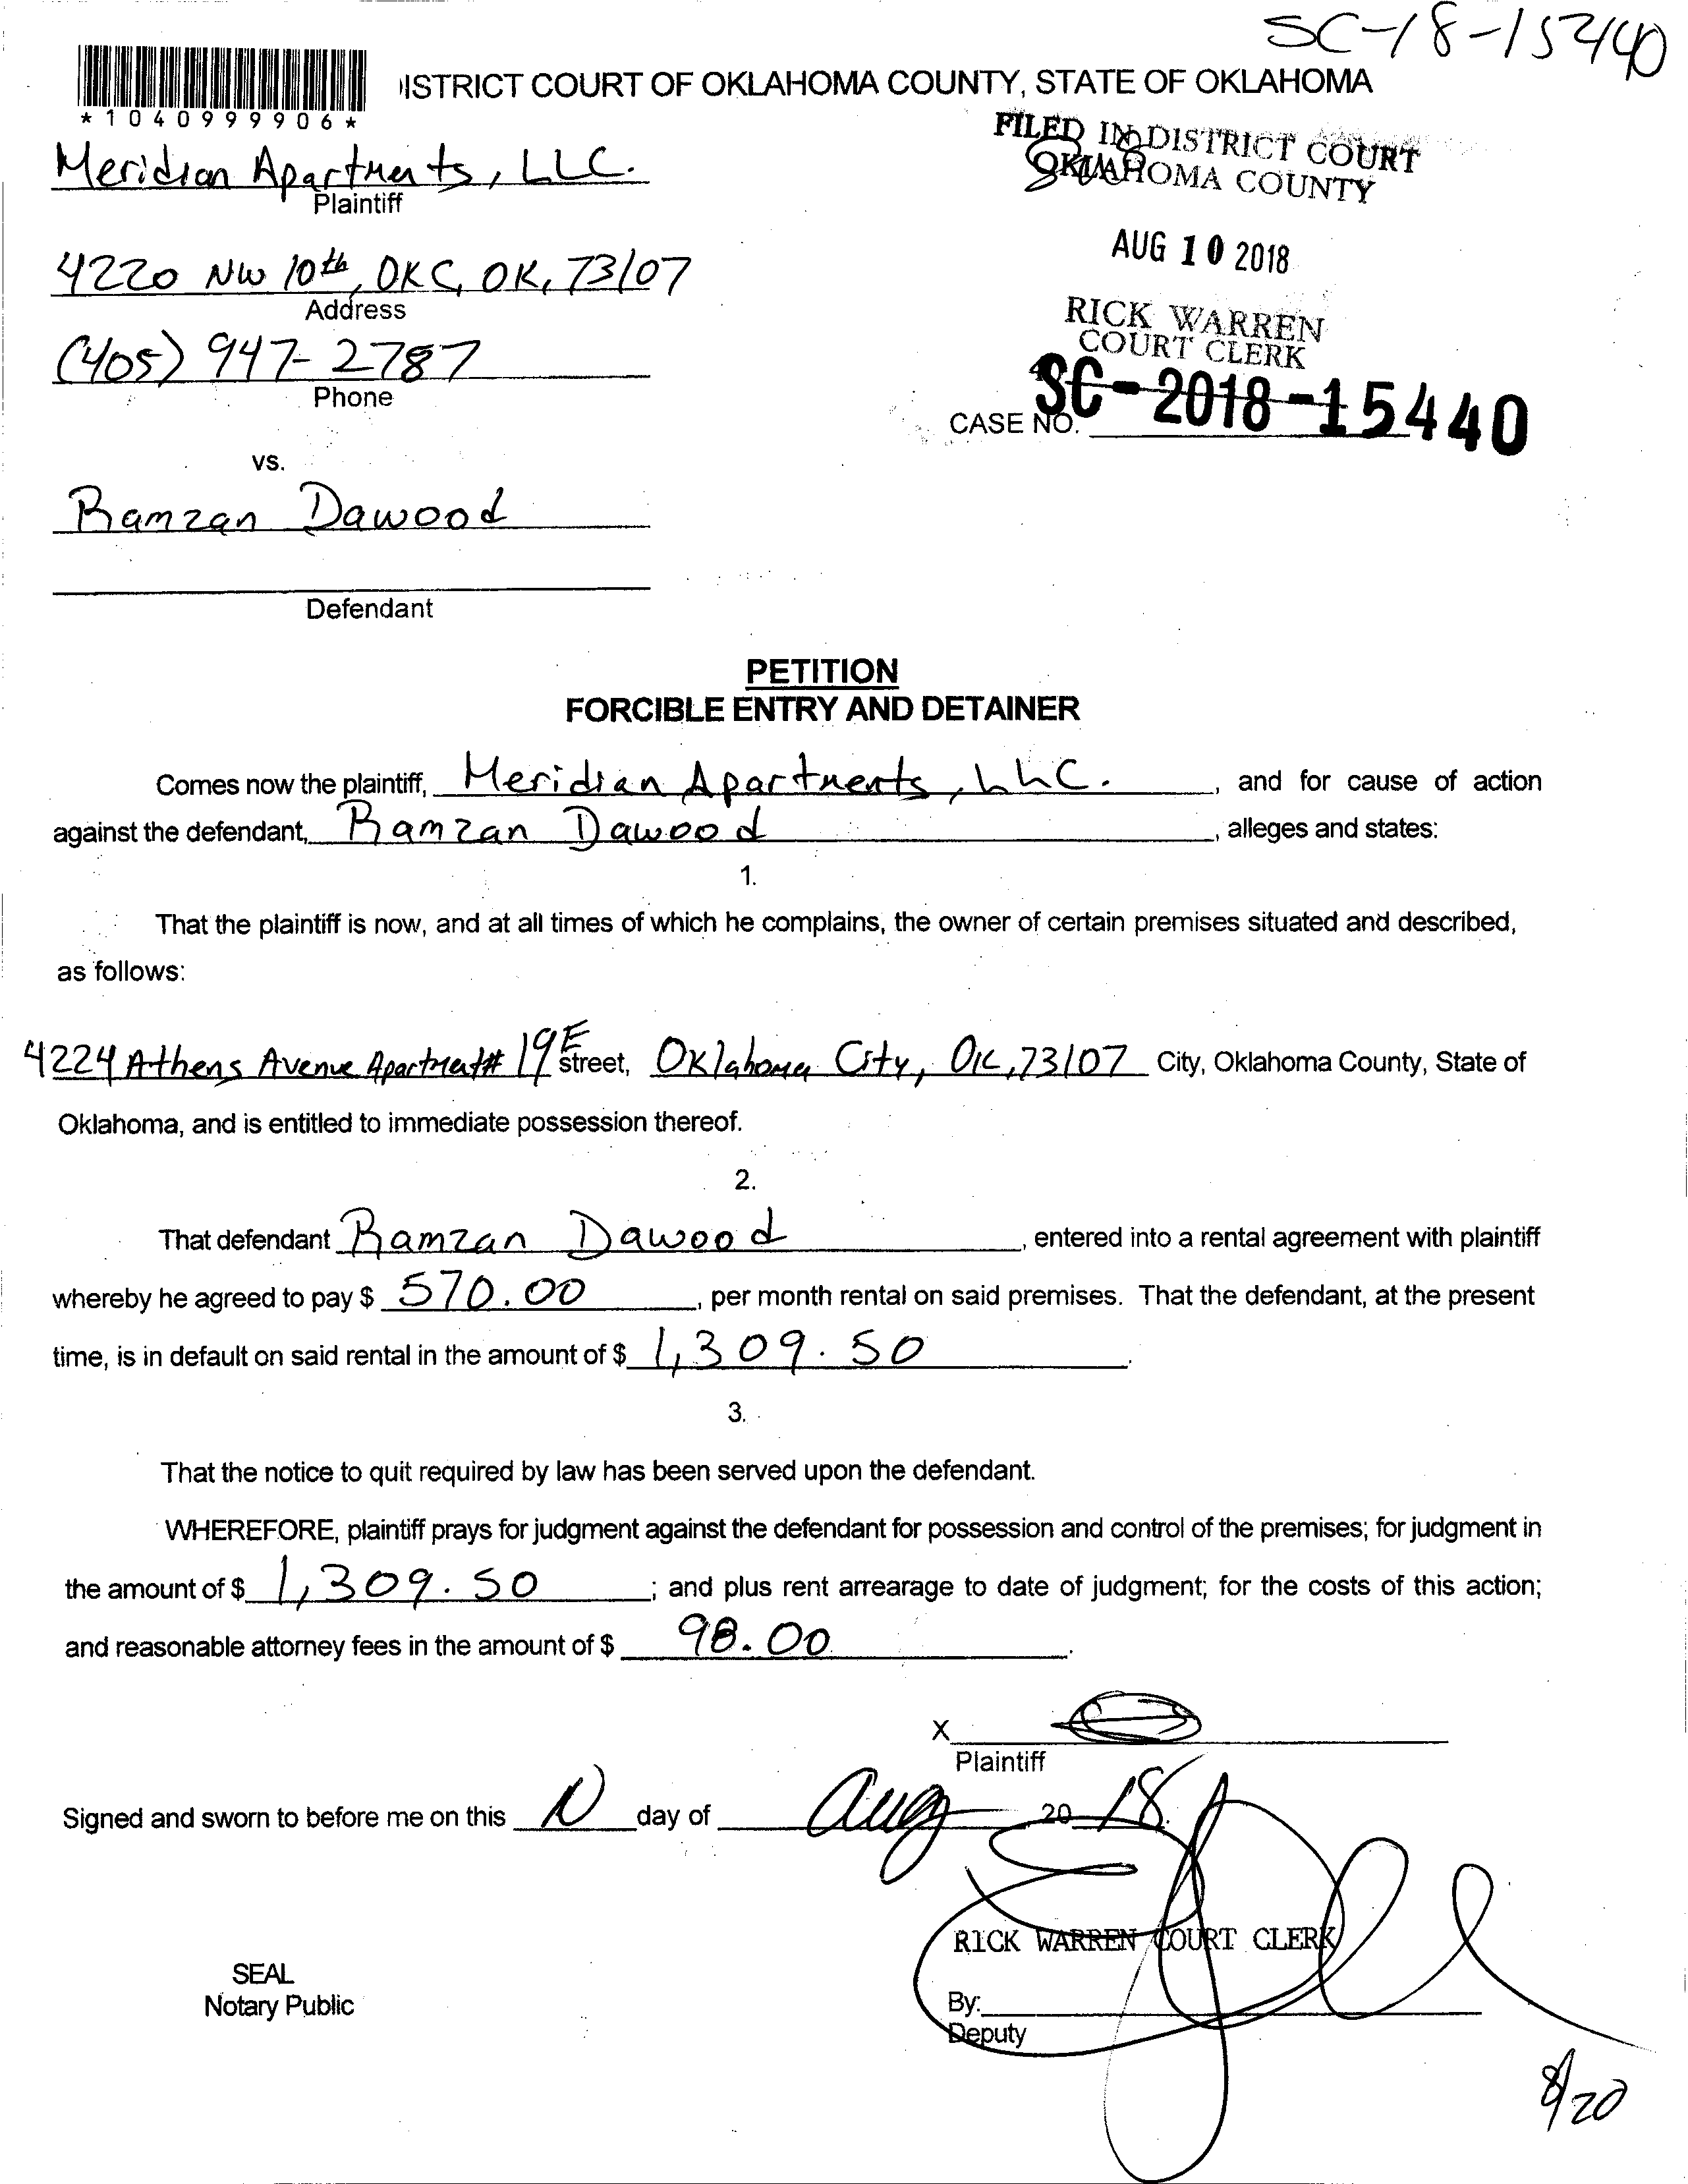 SC-18-15440
*1040999906*
ISTRICT COURT OF OKLAHOMA COUNTY, STATE OF OKLAHOMA
FILED IN DISTRICT COURT
OKLAHOMA COUNTY
Meridian Apartments, LLC.
Plaintiff
AUG 10 2018
4220 NW 10th, OKC, OK, 73107
Address
RICK WARREN
COURT CLERK
(405) 947-2787
Phone
CASE NO. SC-2018-15440
vs.
Ramzan Dawood
Defendant
PETITION
FORCIBLE ENTRY AND DETAINER
Comes now the plaintiff, Meridian Apartments, LLC. , and for cause of action
against the defendant, Ramzan Dawood , alleges and states:
1.
That the plaintiff is now, and at all times of which he complains, the owner of certain premises situated and described,
as follows:
4224 Athens Avenue Apartment# 19E street, Oklahoma City, OK, 73107 City, Oklahoma County, State of
Oklahoma, and is entitled to immediate possession thereof.
2.
That defendant Ramzan Dawood , entered into a rental agreement with plaintiff
whereby he agreed to pay $ 570.00 , per month rental on said premises. That the defendant, at the present
time, is in default on said rental in the amount of $ 1,309.50 .
3.
That the notice to quit required by law has been served upon the defendant.
WHEREFORE, plaintiff prays for judgment against the defendant for possession and control of the premises; for judgment in
the amount of $ 1,309.50 ; and plus rent arrearage to date of judgment; for the costs of this action;
and reasonable attorney fees in the amount of $ 98.00 .
X
Plaintiff
Signed and sworn to before me on this 10 day of Aug 20 18.
RICK WARREN COURT CLERK
SEAL
Notary Public
By:
Deputy
8/20